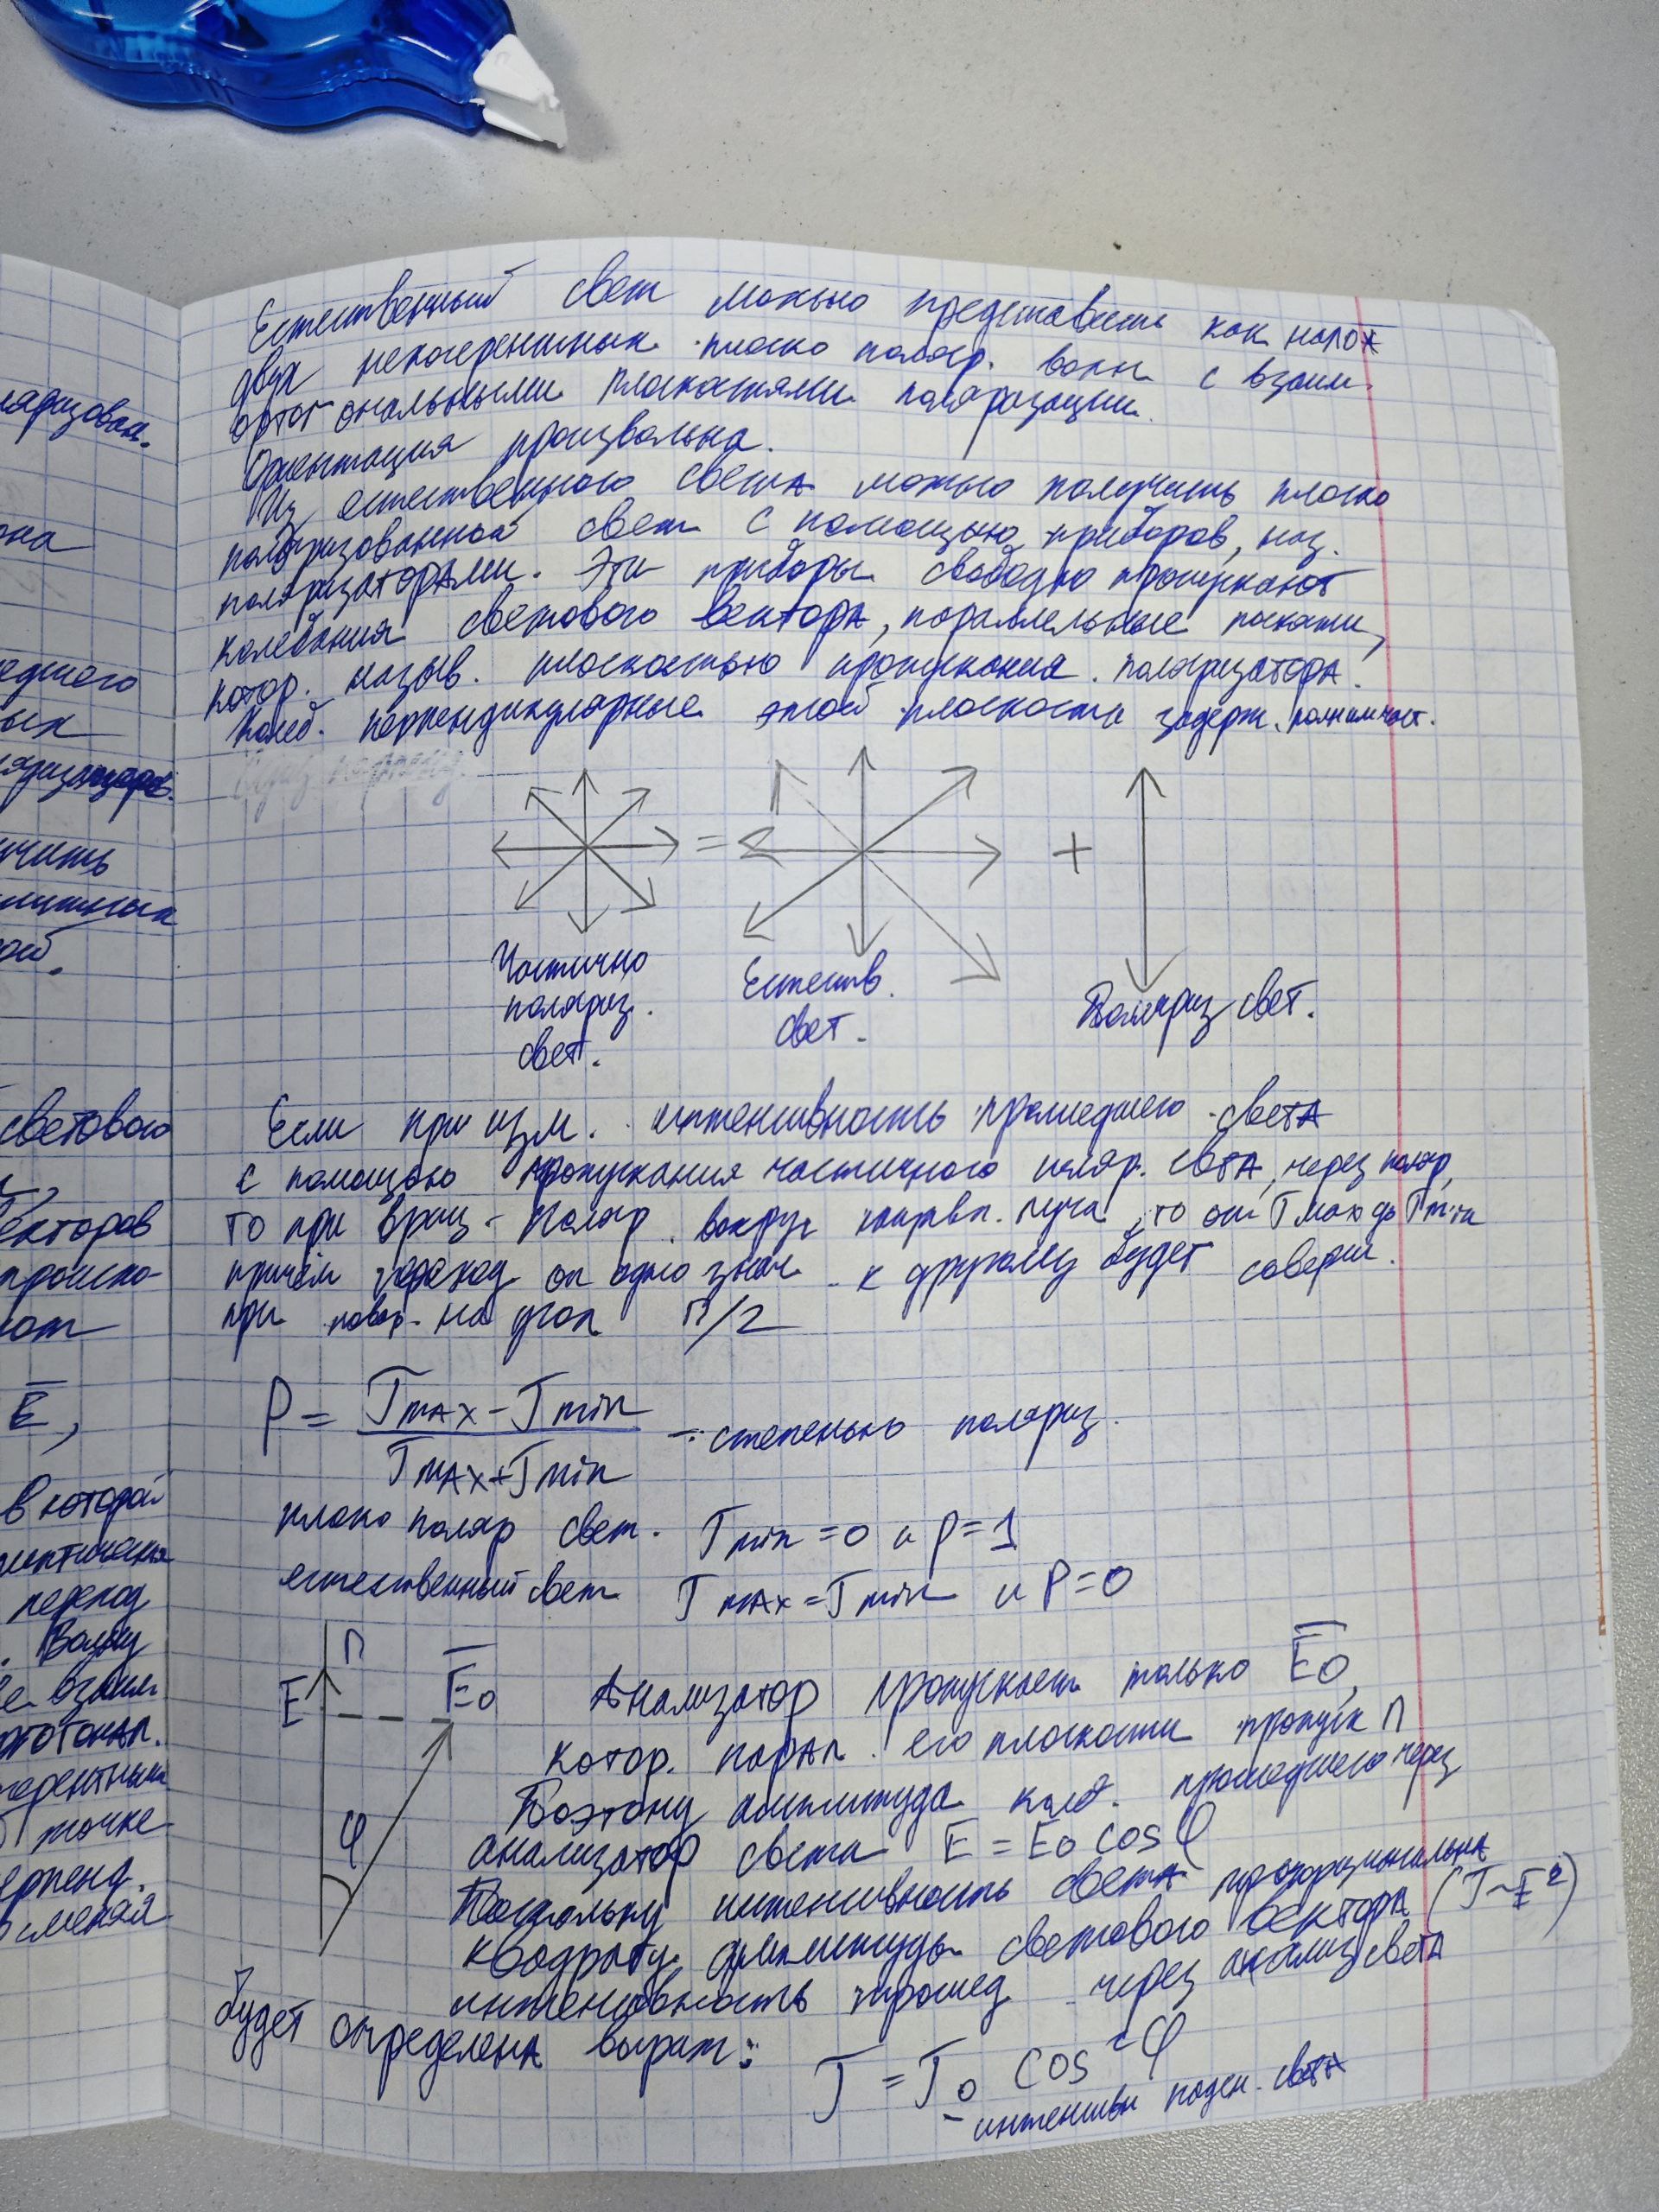 ляризован.
она
едшего
ых
ляризатора.
учить
ой.
светового
екторов
происхо-
E,
в которой
переход
. Волну
е взаим
ортогонал.
герентный
точке
ерпенд.
Естественный свет можно представить как налож
двух некогерентных плоско поляр. волн с взаим.
ортогональными плоскостями поляризации.
Ориентация произвольна.
Из естественного света можно получить плоско
поляризованный свет с помощью приборов, наз.
поляризаторами. Эти приборы свободно пропускают
колебания светового вектора, параллельные
котор. назыв. плоскостью пропускания поляризатора.
Колеб. перпендикулярные этой плоскости задерж.
= +
Частично Естеств. Поляриз свет.
поляриз. свет.
свет.
Если при изм. интенсивность прошедшего света
с помощью пропускания частичного поляр. света, через поляр,
то при вращ. поляр. вокруг направл. луча, то от Jmax до Jmin
причём переход от одно знач. к другому будет соверш.
при повор. на угол π/2
P = (Jmax - Jmin) / (Jmax + Jmin) - степенью поляриз.
плоско поляр свет. Jmin = 0 и P = 1
естественный свет Jmax = Jmin и P = 0
П
E E0 Анализатор пропускает только E0,
котор. парал. его плоскости пропуск П
Поэтому амплитуда колеб. прошедшего через
φ
анализатор света E = E0 cos φ
Поскольку интенсивность света пропорциональна
квадрату амплитуды светового вектора (J~E²)
интенсивность прошед через анализ света
будет определена выраж:
J = J0 cos²φ
- интенсивн паден. света